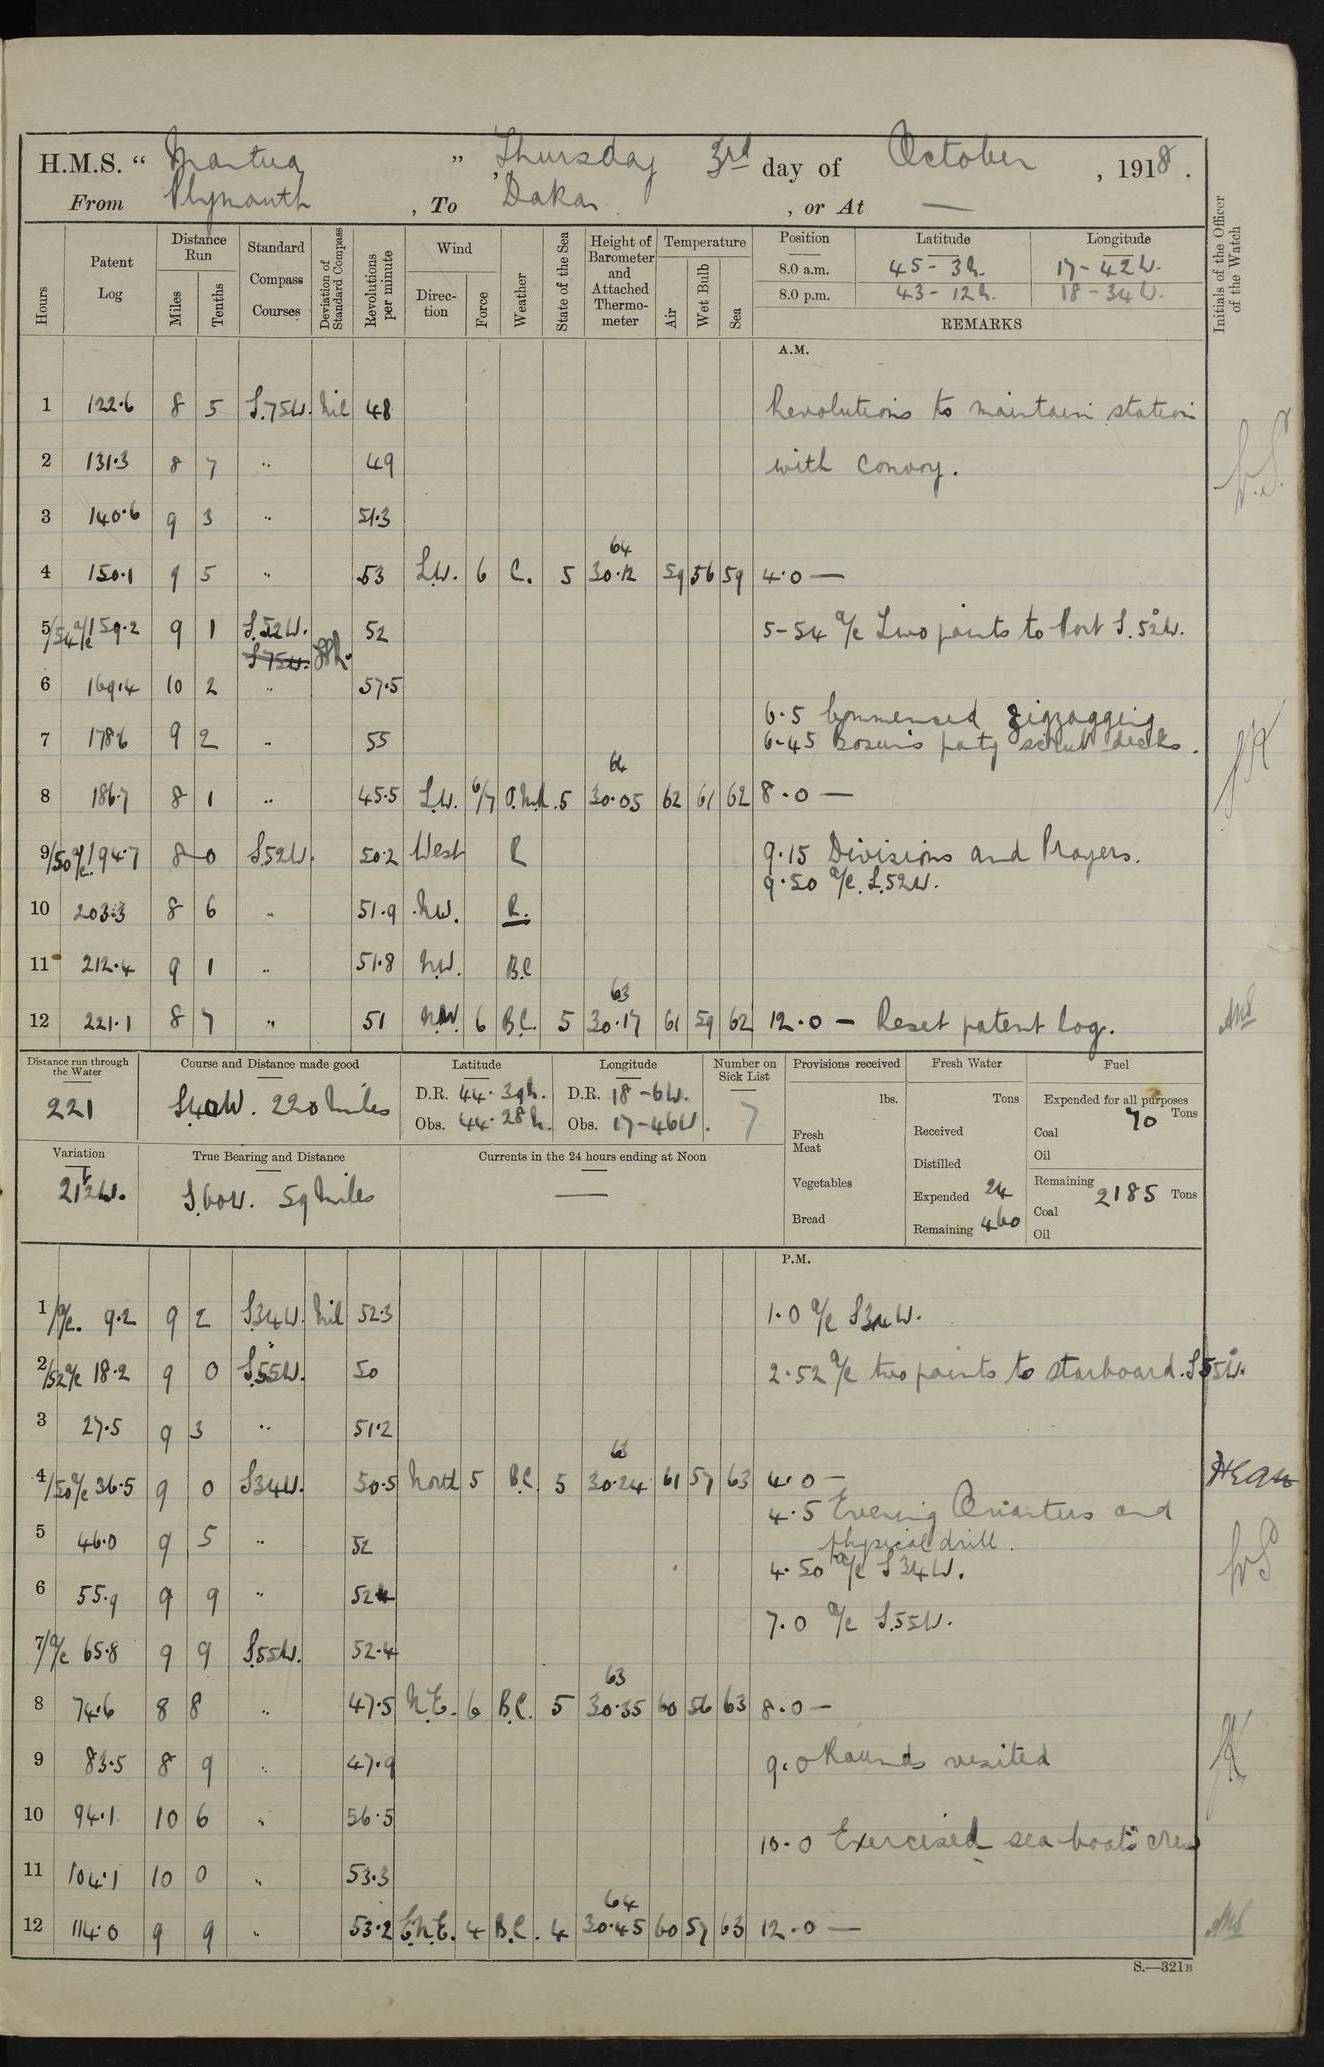 H.M.S. “ Mantua ” , Thursday 3rd day of October , 1918 .
From Plymouth , To Dakar , or At —
Hours
Patent Log
Distance Run
Miles
Tenths
Standard Compass Courses
Deviation of Standard Compass
Revolutions per minute
Wind
Direction
Force
Weather
State of the Sea
Height of Barometer and Attached Thermometer
Temperature
Air
Wet Bulb
Sea
Position Latitude Longitude
8.0 a.m. 45-3N. 17-42W.
8.0 p.m. 43-12N. 18-34W.
REMARKS
Initials of the Officer of the Watch
A.M.
1 122.6 8 5 S.75W. Nil 48 Revolutions to maintain station
2 131.3 8 7 " 49 with convoy.
3 140.6 9 3 " 51.3
64
4 150.1 9 5 " 53 S.W. 6 C. 5 30.12 59 56 59 4.0 —
5/54 a/c 159.2 9 1 S.52W. 52 5-54 a/c Two points to Port S.52W.
S75W.
6 169.4 10 2 " 57.5
6.5 Commenced zigzagging
7 178.6 9 2 " 55 6-45 Bosun's party scrub decks.
64
8 186.7 8 1 " 45.5 S.W. 6/7 5 30.05 62 61 62 8.0 —
9/50 a/c 194.7 8 0 S.52W. 50.2 West R 9.15 Divisions and Prayers.
9.50 a/c. S.52W.
10 203.3 8 6 " 51.9 NW. R.
11 212.4 9 1 " 51.8 N.W. B.C
63
12 221.1 8 7 " 51 NW. 6 B.C. 5 30.17 61 59 62 12.0 — Reset patent log.
Distance run through the Water
221
Course and Distance made good
S40W. 220 Miles
Latitude
D.R. 44-39N.
Obs. 44-28N.
Longitude
D.R. 18-6W.
Obs. 17-46W.
Number on Sick List
7
Provisions received
lbs.
Fresh Meat
Vegetables
Bread
Fresh Water
Tons
Received
Distilled
Expended 24
Remaining 460
Fuel
Expended for all purposes
70 Tons
Coal
Oil
Remaining 2185 Tons
Coal
Oil
Variation
21½W.
True Bearing and Distance
S.60W. 59 Miles
Currents in the 24 hours ending at Noon
—
P.M.
1/a/c. 9.2 9 2 S34W. Nil 52.3 1.0 a/c S34W.
2/52 a/c 18.2 9 0 S.55W. 50 2.52 a/c two points to starboard. S55W.
3 27.5 9 3 " 51.2
63
4/50 a/c 36.5 9 0 S34W. 50.5 North 5 B.C. 5 30.24 61 57 63 4.0 —
4.5 Evening Quarters and
5 46.0 9 5 " 52 physical drill.
4.50 a/c S34W.
6 55.9 9 9 " 52.4
7.0 a/c S.55W.
7/a/c 65.8 9 9 S55W. 52.4
63
8 74.6 8 8 " 47.5 N.E. 6 B.C. 5 30.35 60 56 63 8.0 —
9 83.5 8 9 " 47.9 9.0 Rounds visited
10 94.1 10 6 " 56.5
10.0 Exercised sea-boat's crew
11 104.1 10 0 " 53.3
64
12 114.0 9 9 " 53.2 E.N.E. 4 B.C. 4 30.45 60 57 63 12.0 —
S.—321B